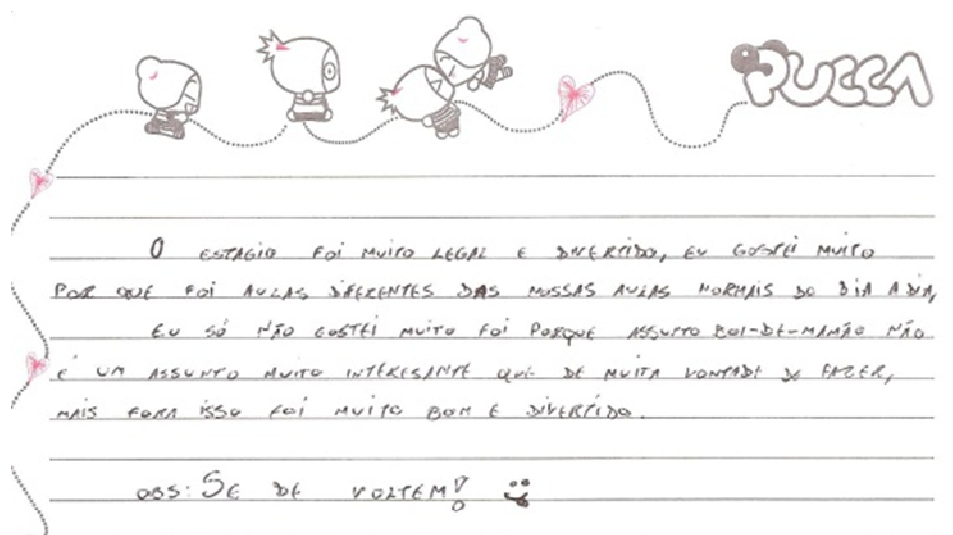 PUCCA
O ESTAGIO FOI MUITO LEGAL E DIVERTIDO, EU GOSTEI MUITO
POR QUE FOI AULAS DIFERENTES DAS NOSSAS AULAS NORMAIS DO DIA A DIA,
EU SÓ NÃO GOSTEI MUITO FOI PORQUE ASSUNTO BOI-DE-MAMÃO NÃO
É UM ASSUNTO MUITO INTERESANTE QUE DE MUITA VONTADE DE FAZER,
MAIS FORA ISSO FOI MUITO BOM E DIVERTIDO.
OBS: SE DE VOLTEM!